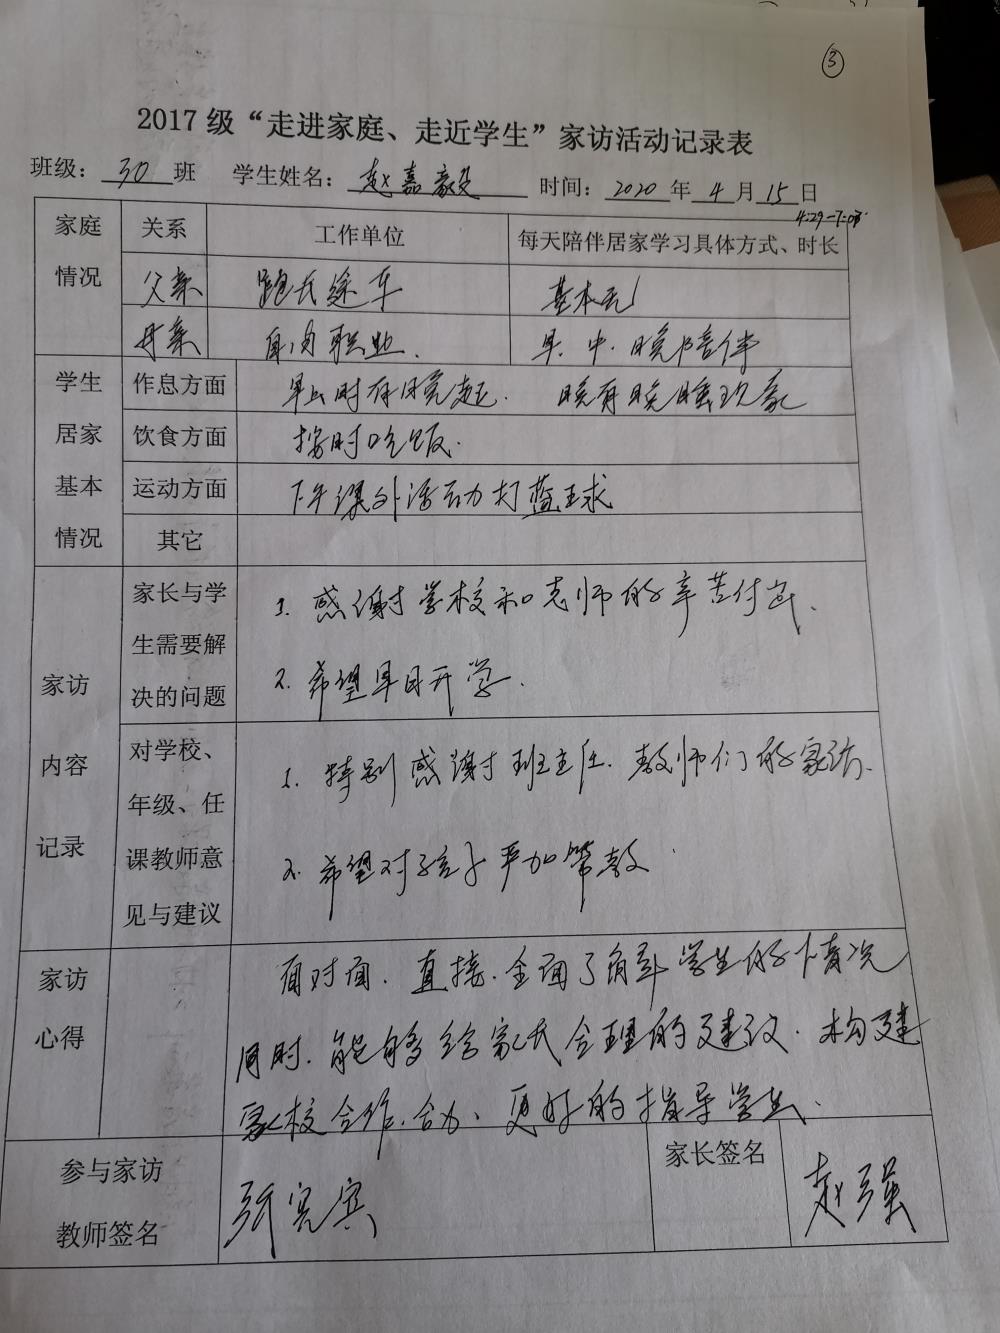 ③
2017 级“走进家庭、走近学生”家访活动记录表
班级: 30 班 学生姓名: 赵嘉毅 时间: 2020 年 4 月 15 日
4:29-7:03
家庭情况 关系 工作单位 每天陪伴居家学习具体方式、时长
父亲 跑长途车 基本无
母亲 自由职业. 早.中.晚陪伴
学生居家基本情况 作息方面 早上时有晚起. 晚有晚睡现象
饮食方面 按时吃饭.
运动方面 下午课外活动打蓝球
其它
家访内容记录 家长与学生需要解决的问题
1. 感谢学校和老师的辛苦付出.
2. 希望早日开学.
对学校、年级、任课教师意见与建议
1. 特别感谢班主任.教师们的家访.
2. 希望对孩子严加管教.
家访心得
面对面.直接.全面了解 学生的情况
同时.能够给家长合理的建议.构建
家校合作.合力、更好的指导学生.
参与家访教师签名 宾 家长签名 赵强